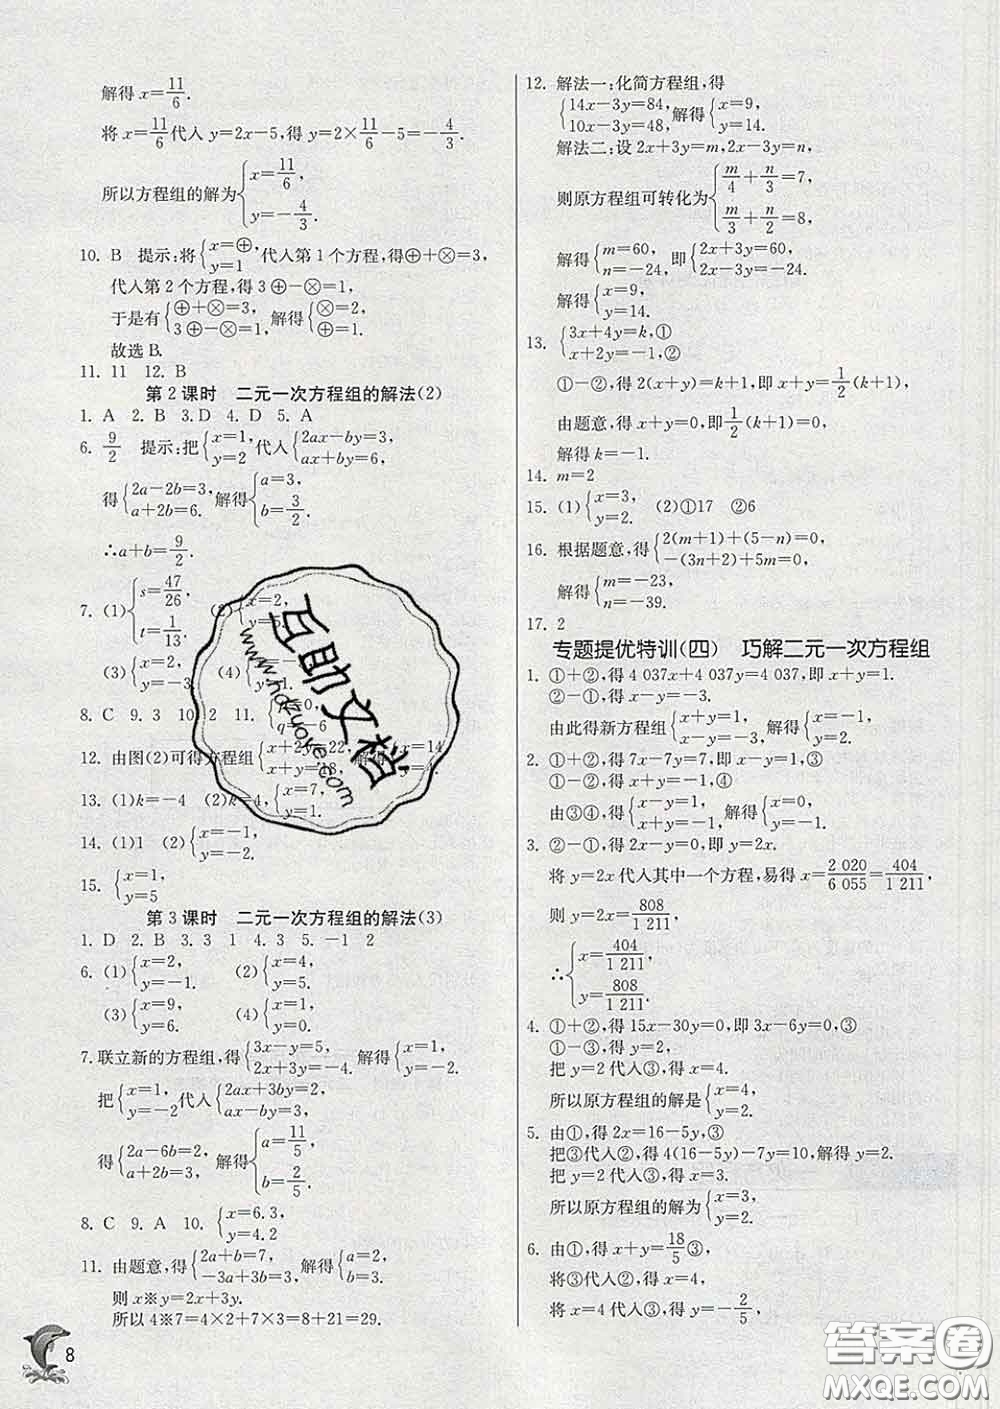 解得 x=11/6.
将 x=11/6 代入 y=2x-5,得 y=2×11/6-5=-4/3.
所以方程组的解为{x=11/6, y=-4/3.
10. B 提示:将{x=⊕, y=1 代入第1个方程,得⊕+⊗=3,
代入第2个方程,得3⊕-⊗=1,
于是有{⊕+⊗=3, 3⊕-⊗=1, 解得{⊗=2, ⊕=1.
故选B.
11. 11 12. B
第2课时 二元一次方程组的解法(2)
1. A 2. B 3. D 4. D 5. A
6. 9/2 提示:把{x=1, y=2 代入{2ax-by=3, ax+by=6,
得{2a-2b=3, a+2b=6. 解得{a=3, b=3/2.
∴a+b=9/2.
7. (1){s=47/26, t=1/13. (2){x=2, y=5.
8. C 9. 3 10. 2 11. {q=-6
12. 由图(2)可得方程组{x+2y=22, x+y=18, 解得{y=14
13. (1)k=-4 (2)k=4,{x=1, y=1.
14. (1)1 (2){x=-1, y=-2.
15. {x=1, y=5
第3课时 二元一次方程组的解法(3)
1. D 2. B 3. 3 1 4. 3 5. -1 2
6. (1){x=2, y=-1. (2){x=4, y=5.
(3){x=9, y=6. (4){x=1, y=0.
7. 联立新的方程组,得{3x-y=5, 2x+3y=-4. 解得{x=1, y=-2.
把{x=1, y=-2 代入{2ax+3by=2, ax-by=3,
得{2a-6b=2, a+2b=3, 解得{a=11/5, b=2/5.
8. C 9. A 10. {x=6.3, y=4.2
11. 由题意,得{2a+b=7, -3a+3b=3, 解得{a=2, b=3.
则 x※y=2x+3y.
所以 4※7=4×2+7×3=8+21=29.
8
12. 解法一:化简方程组,得
{14x-3y=84, 10x-3y=48, 解得{x=9, y=14.
解法二:设 2x+3y=m,2x-3y=n,
则原方程组可转化为{m/4+n/3=7, m/3+n/2=8,
解得{m=60, n=-24, 即{2x+3y=60, 2x-3y=-24.
解得{x=9, y=14.
13. {3x+4y=k,① x+2y=-1,②
①-②,得 2(x+y)=k+1,即 x+y=1/2(k+1),
由题意,得 x+y=0,即1/2(k+1)=0,
解得 k=-1.
14. m=2
15. (1){x=3, y=2. (2)①17 ②6
16. 根据题意,得{2(m+1)+(5-n)=0, -(3n+2)+5m=0,
解得{m=-23, n=-39.
17. 2
专题提优特训(四) 巧解二元一次方程组
1. ①+②,得 4 037x+4 037y=4 037,即 x+y=1.
②-①,得 x-y=-3.
由此得新方程组{x+y=1, x-y=-3, 解得{x=-1, y=2.
2. ①+②,得 7x-7y=7,即 x-y=1,③
①-②,得 x+y=-1,④
由③④,得{x-y=1, x+y=-1, 解得{x=0, y=-1.
3. ②-①,得 2x-y=0,即 y=2x.
将 y=2x 代入其中一个方程,易得 x=2 020/6 055=404/1 211,
则 y=2x=808/1 211,
∴{x=404/1 211, y=808/1 211.
4. ①+②,得 15x-30y=0,即 3x-6y=0,③
①-③,得 y=2,
把 y=2 代入③,得 x=4.
所以原方程组的解是{x=4, y=2.
5. 由①,得 2x=16-5y,③
把③代入②,得 4(16-5y)-7y=10,解得 y=2.
把 y=2 代入③,得 x=3.
所以原方程组的解为{x=3, y=2.
6. 由①,得 x+y=18/5③,
将③代入②,得 x=4,
将 x=4 代入③,得 y=-2/5,
互助文档
www.hdzuoye.com
答案圈
MXQE.COM